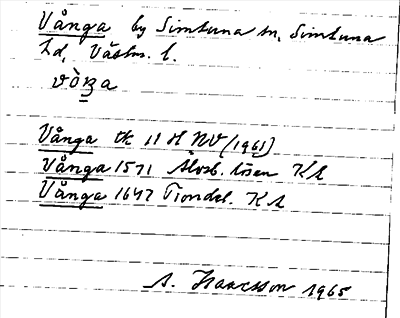 Vånga by Simtuna sn, Simtuna
hd, Västm. l.
vòŋa
Vånga tk 11 H NV (1961)
Vånga 1571 Älvsb. lösen KA
Vånga 1647 Tiondel. KA
A. Isaacsson 1965